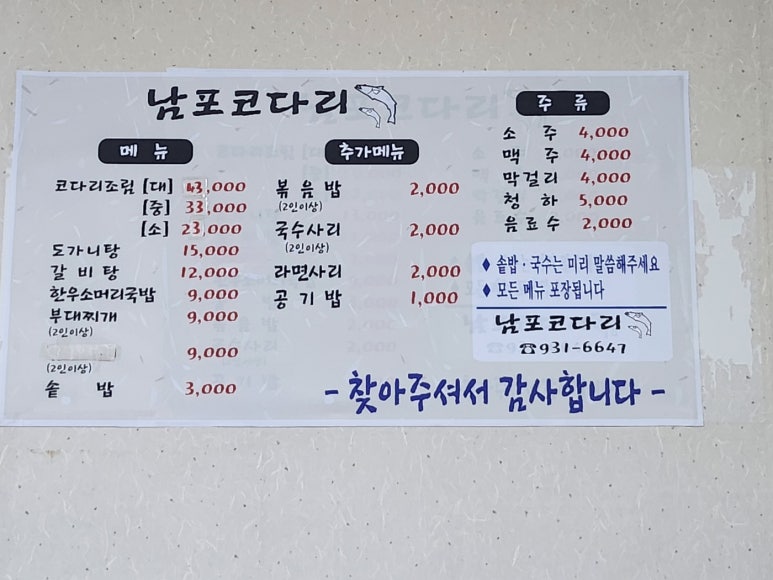 남포코다리
메 뉴
코다리조림 [대] 43,000
[중] 33,000
[소] 23,000
도가니탕 15,000
갈비탕 12,000
한우소머리국밥 9,000
부대찌개 9,000
(2인이상)
9,000
(2인이상)
솥 밥 3,000
추가메뉴
볶음밥 2,000
(2인이상)
국수사리 2,000
(2인이상)
라면사리 2,000
공기밥 1,000
주 류
소 주 4,000
맥 주 4,000
막걸리 4,000
청 하 5,000
음료수 2,000
♦ 솥밥·국수는 미리 말씀해주세요
♦ 모든 메뉴 포장됩니다
남포코다리
☎931-6647
- 찾아주셔서 감사합니다 -